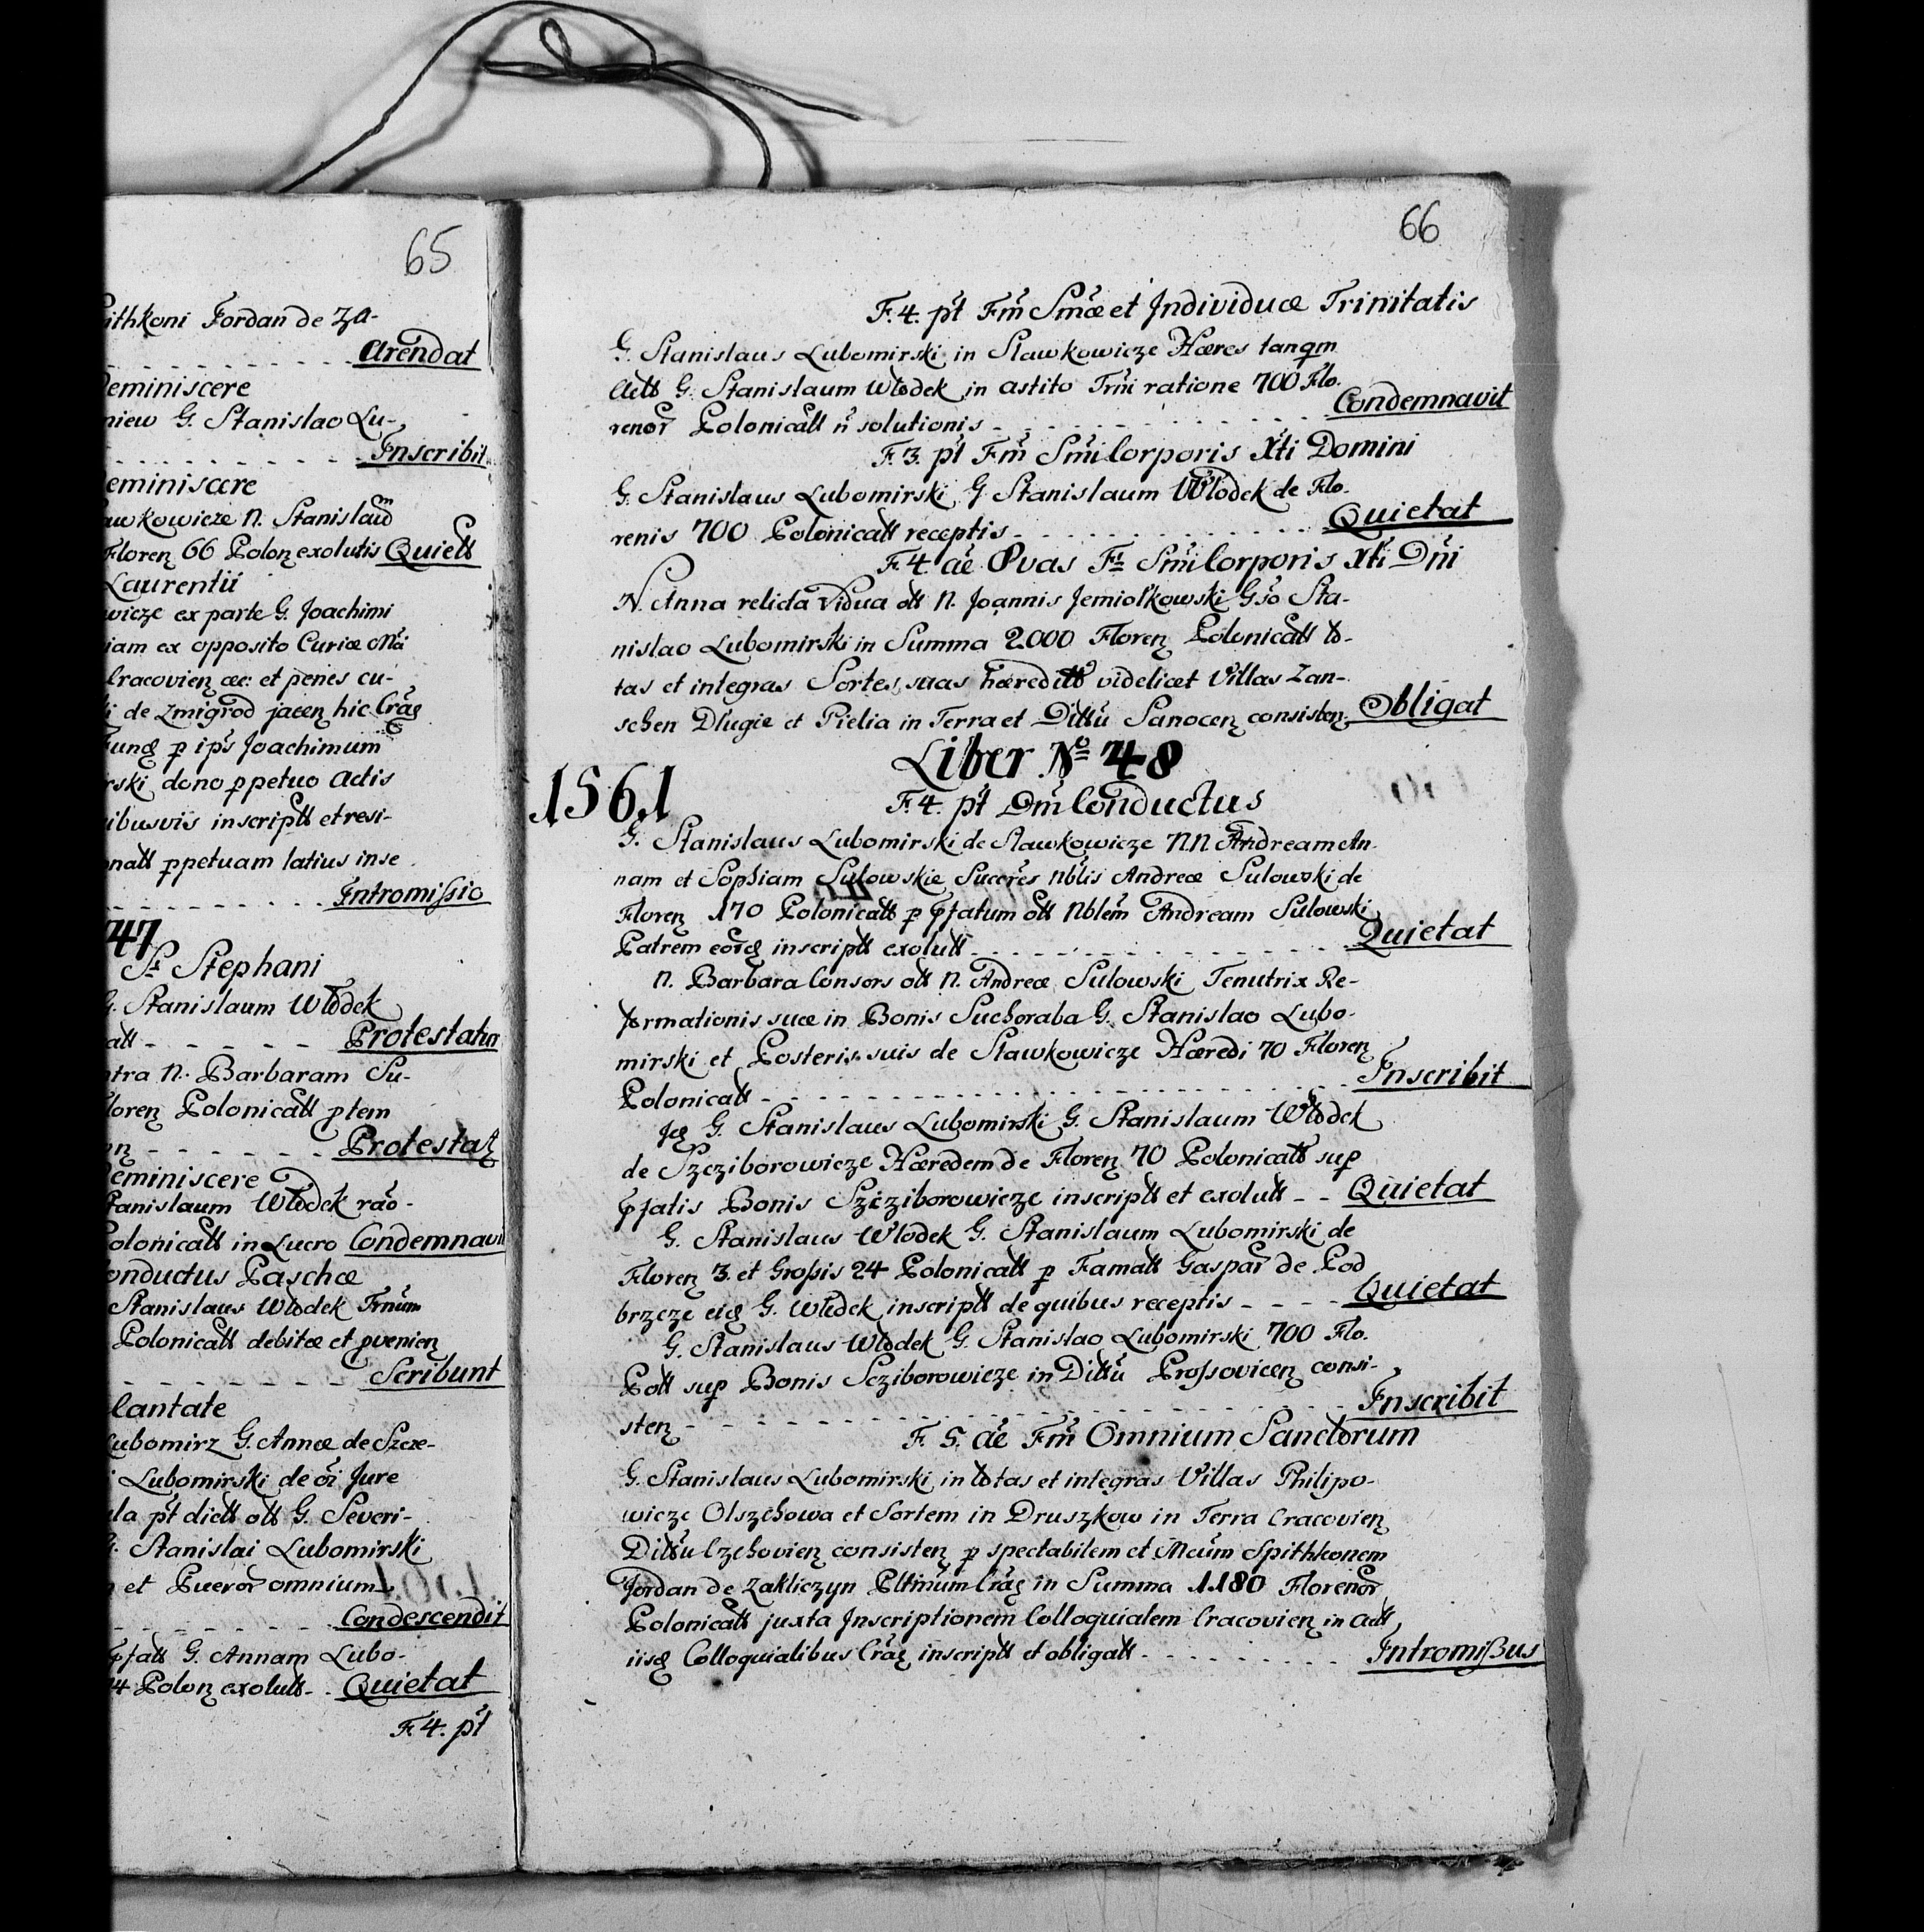 65
ithkoni Jordan de Za-
Arendat
eminiscere
niew G. Stanislao Lu-
Inscribit
eminiscere
awkowicze N. Stanislaum
Floren 66 Polon exolutis Quiett
Laurentii
wicze ex parte G. Joachimi
iam ex opposito Curiæ
Cracovien æc: et penes cu-
i de Zmigrod jacen hic Crac
p ips Joachimum
rski dono ppetuo Actis
ibusvis inscriptt et resi-
natt ppetuam latius inse
Intromissio
47
St Stephani
G. Stanislaum Wlodek
att - - - - - Protestatur
ntra N. Barbaram Su-
loren Polonicatt ptem
Protestat
eminiscere
Stanislaum Wlodek rao-
Polonicatt in Lucro Condemnavit
onductus Paschæ
Stanislaus Wlodek Trnum
Polonicatt debitæ et pvenien
Scribunt
Cantate
Lubomirz G. Annæ de Szcze-
i Lubomirski de oi Jure
la pt dictt ott G. Severi-
G. Stanislai Lubomirski
et Pueror omnium
Condescendit
pfatt G. Annam Lubo-
4 Polon exolutt - Quietat
F. 4. pt
66
F. 4. pt Fm Smæ et Individuæ Trinitatis
G. Stanislaus Lubomirski in Slawkowicze Hæres tanqm
Actt G. Stanislaum Wlodek in astito Trni ratione 700 Flo-
renor Polonicatt n solutionis - - - Condemnavit
F. 3. pt Fm Smi Corporis Xti Domini
G. Stanislaus Lubomirski G Stanislaum Wlodek de Flo-
renis 700 Polonicatt receptis - - - Quietat
F. 4. ae Ovas Ft Smi Corporis Xti Dni
N. Anna relicta Vidua ott N. Joannis Jemiołkowski Gso Sta-
nislao Lubomirski in Summa 2000 Floren Polonicatt to-
tas et integras Sortes suas hæreditt videlicet Villas Zan-
schen Dlugie et Pielia in Terra et Dittu Sanocen consisten Obligat
Liber No 48
1561
F. 4. pt Dm Conductus
G. Stanislaus Lubomirski de Slawkowicze NN Andream An-
nam et Sophiam Sulowskie Succres nblis Andreæ Sulowski de
Floren 170 Polonicatt p pfatum ott Nblem Andream Sulowski
Patrem eorq inscriptt exolutt - - - Quietat
N. Barbara Consors ott N. Andreæ Sulowski Tenutrix Re-
formationis suæ in Bonis Suchoraba G. Stanislao Lubo-
mirski et Posteris suis de Slawkowicze Hæredi 70 Floren
Polonicatt - - - Inscribit
Iq G. Stanislaus Lubomirski G. Stanislaum Wlodek
de Szcziborowicze Hæredem de Floren 70 Polonicatt sup
pfatis Bonis Szcziborowicze inscriptt et exolutt - - Quietat
G. Stanislaus Wlodek G. Stanislaum Lubomirski de
Floren 3. et Grossis 24 Polonicatt p Famatt Gaspar de Pod
brzeze eiq G. Wlodek inscriptt de quibus receptis - - - - Quietat
G. Stanislaus Wlodek G. Stanislao Lubomirski 700 Flo-
Pott sup Bonis Scziborowicze in Dittu Prossovicen consi-
sten - - - Inscribit
F. 5. ae Fm Omnium Sanctorum
G. Stanislaus Lubomirski in totas et integras Villas Philipo-
wicze Olszchowa et Sortem in Druszkow in Terra Cracovien
Dittu Czchovien consisten p spectabilem et Mcum Spithkonem
Jordan de Zakliczyn Pltinum Crac in Summa 1180 Florenor
Polonicatt juxta Inscriptionem Colloquialem Cracovien in Actt
iisq Colloquialibus Crac inscriptt et obligatt - - - Intromissus